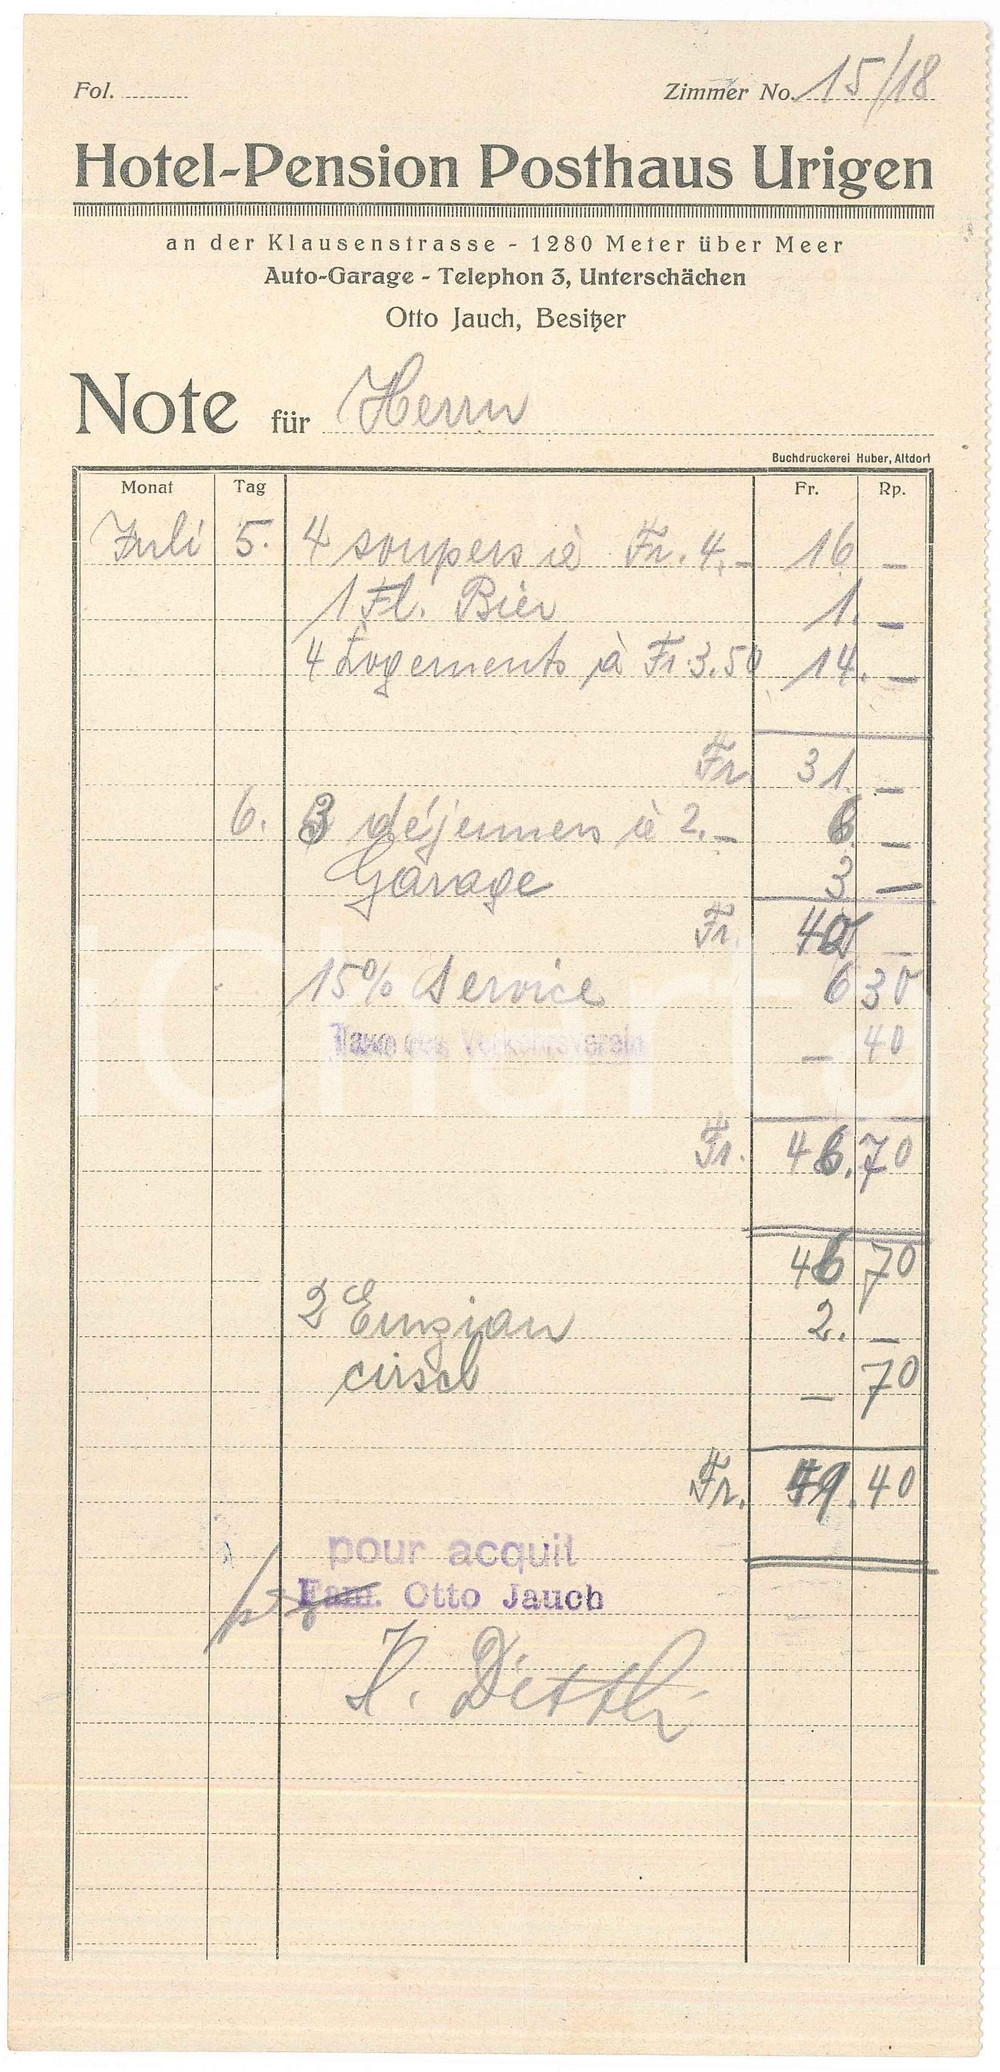 Fol. ......... Zimmer No. 15/18
Hotel-Pension Posthaus Urigen
an der Klausenstrasse - 1280 Meter über Meer
Auto-Garage - Telephon 3, Unterschächen
Otto Jauch, Besitzer
Note für Herrn
Buchdruckerei Huber, Altdorf
Monat Tag Fr. Rp.
Juli 5. 4 soupers à Fr. 4.- 16 -
1 Fl. Bier 1. -
4 Logements à Fr. 3.50 14. -
Fr. 31. -
6. 3 déjeuners à 2.- 6. -
Garage 3 -
Fr. 40 -
15% Service 6 30
Taxe Verkehrsverein - 40
Fr. 46.70
46 70
2 Enzian 2. -
- 70
Fr. 49.40
pour acquit
Fam. Otto Jauch
H. Dittli